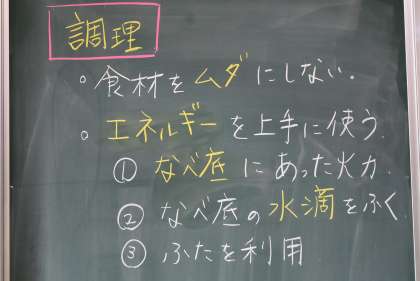 調理
◦食材をムダにしない.
◦エネルギーを上手に使う.
①なべ底にあった火力
②なべ底の水滴をふく
③ふたを利用